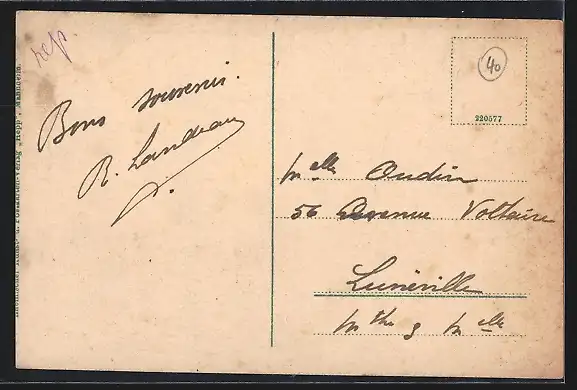 rep
Bons souvenir.
R. Landeau
40
320577
Melle Oudin
56 Avenue Voltaire
Lunéville
Mthe & Melle